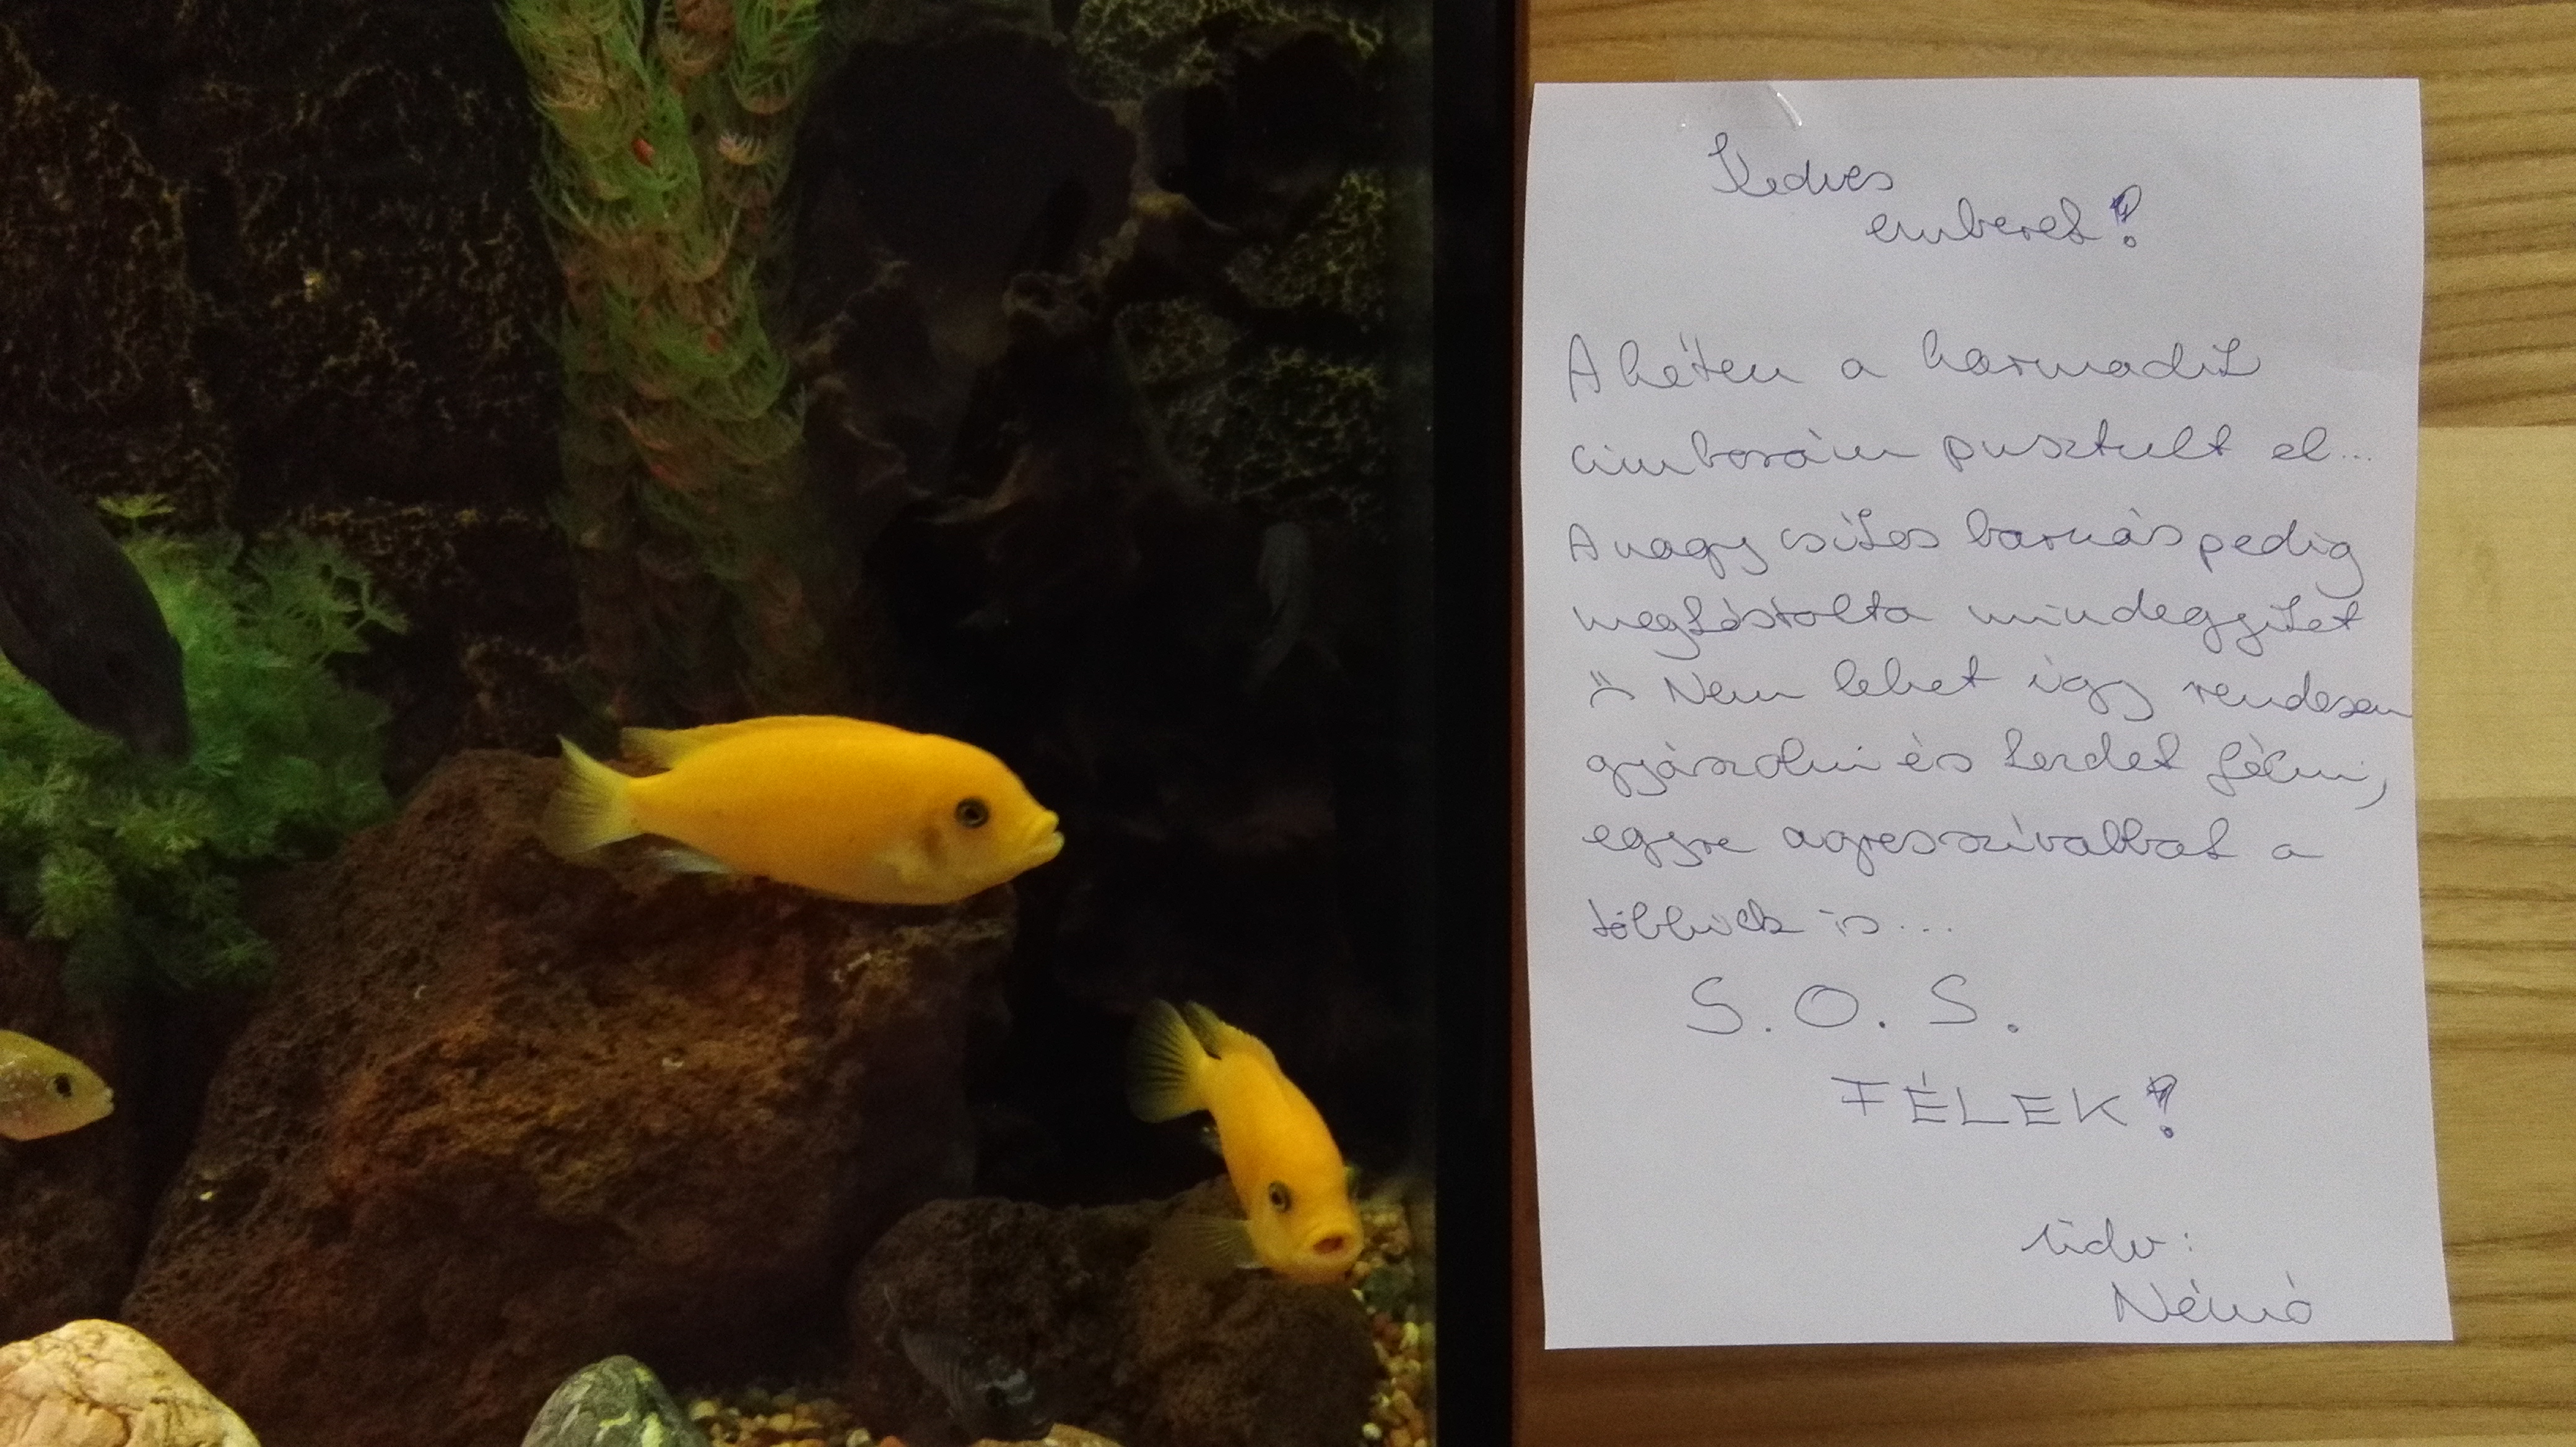 Kedves
emberek!
A héten a harmadik
cimborám pusztult el...
A nagy csíkos barnás pedig
megkóstolta mindegyiket
:( Nem lehet így rendesen
gyászolni és kezdek félni,
egyre agresszívabbak a
többiek is...
S.O.S.
FÉLEK!
üdv:
Némó